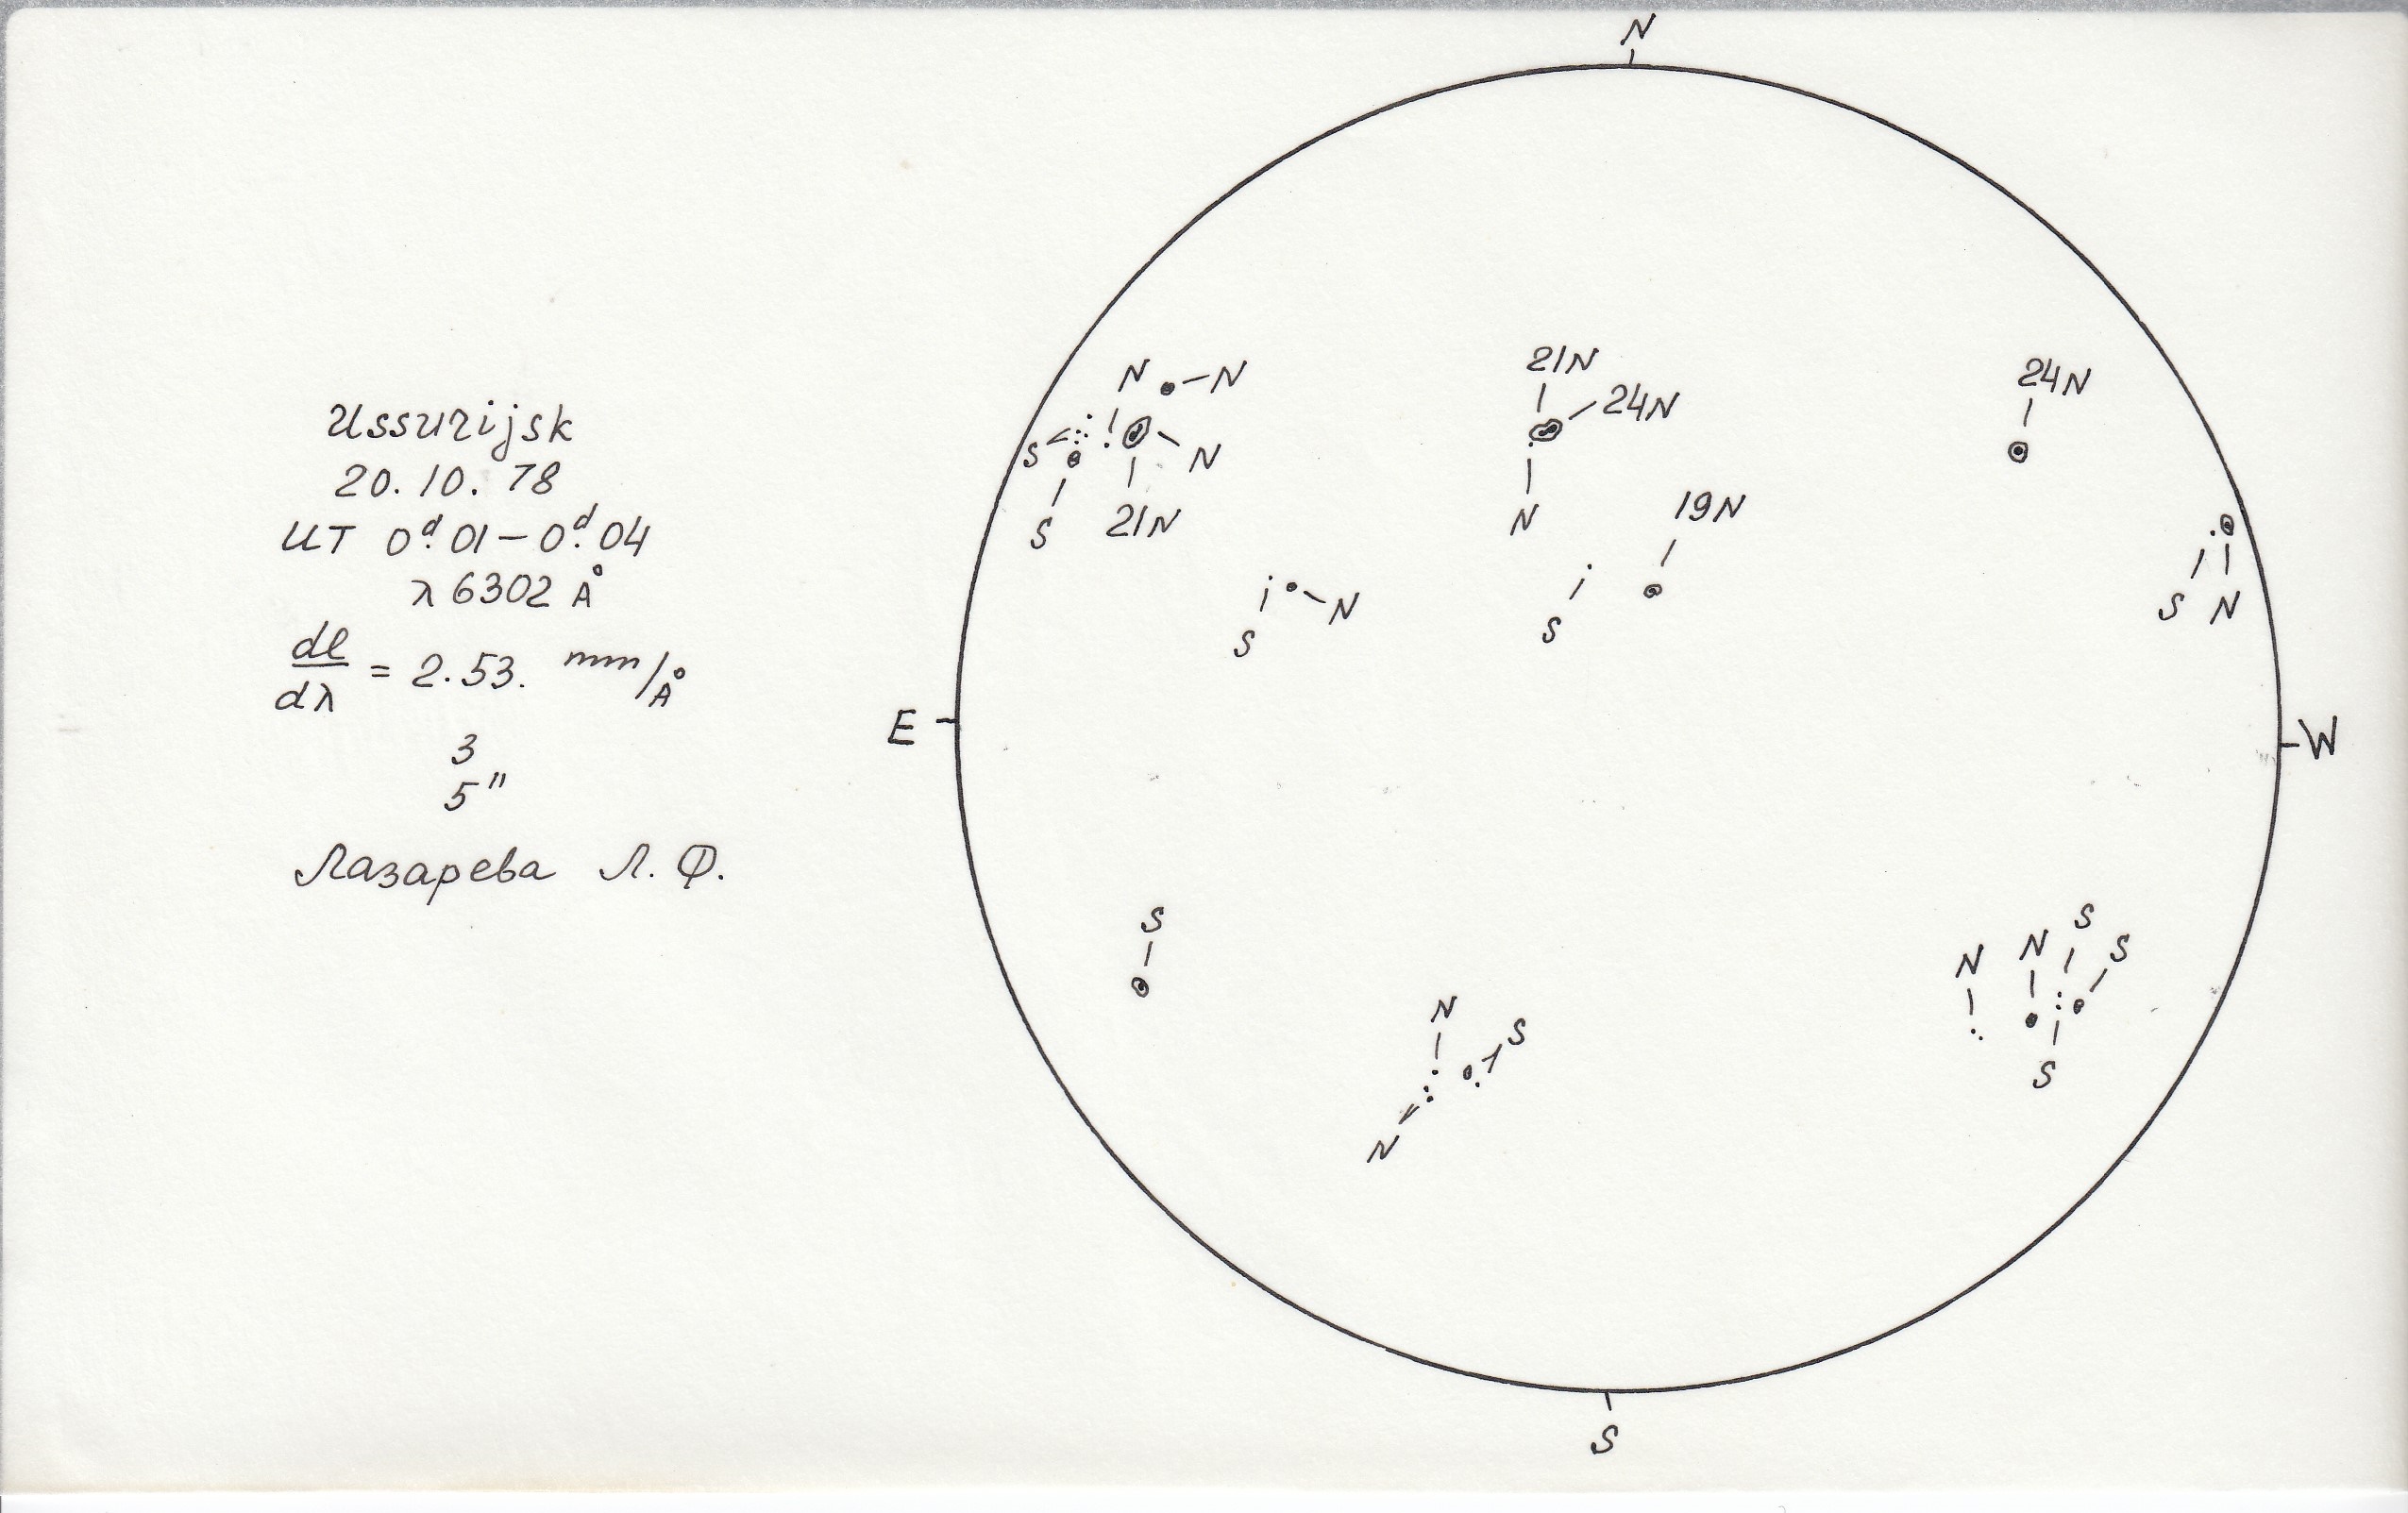 Ussurijsk
20.10.78
UT 0ᵈ.01–0ᵈ.04
λ 6302 Å
dl/dλ = 2.53. mm/Å
3
5"
Лазарева Л. Ф.
N
N N
S
S
21N
N
21N
24N
N
24N
19N
S
S
N
S
N
E
W
S
N
S
N
N
N
S
S
S
S